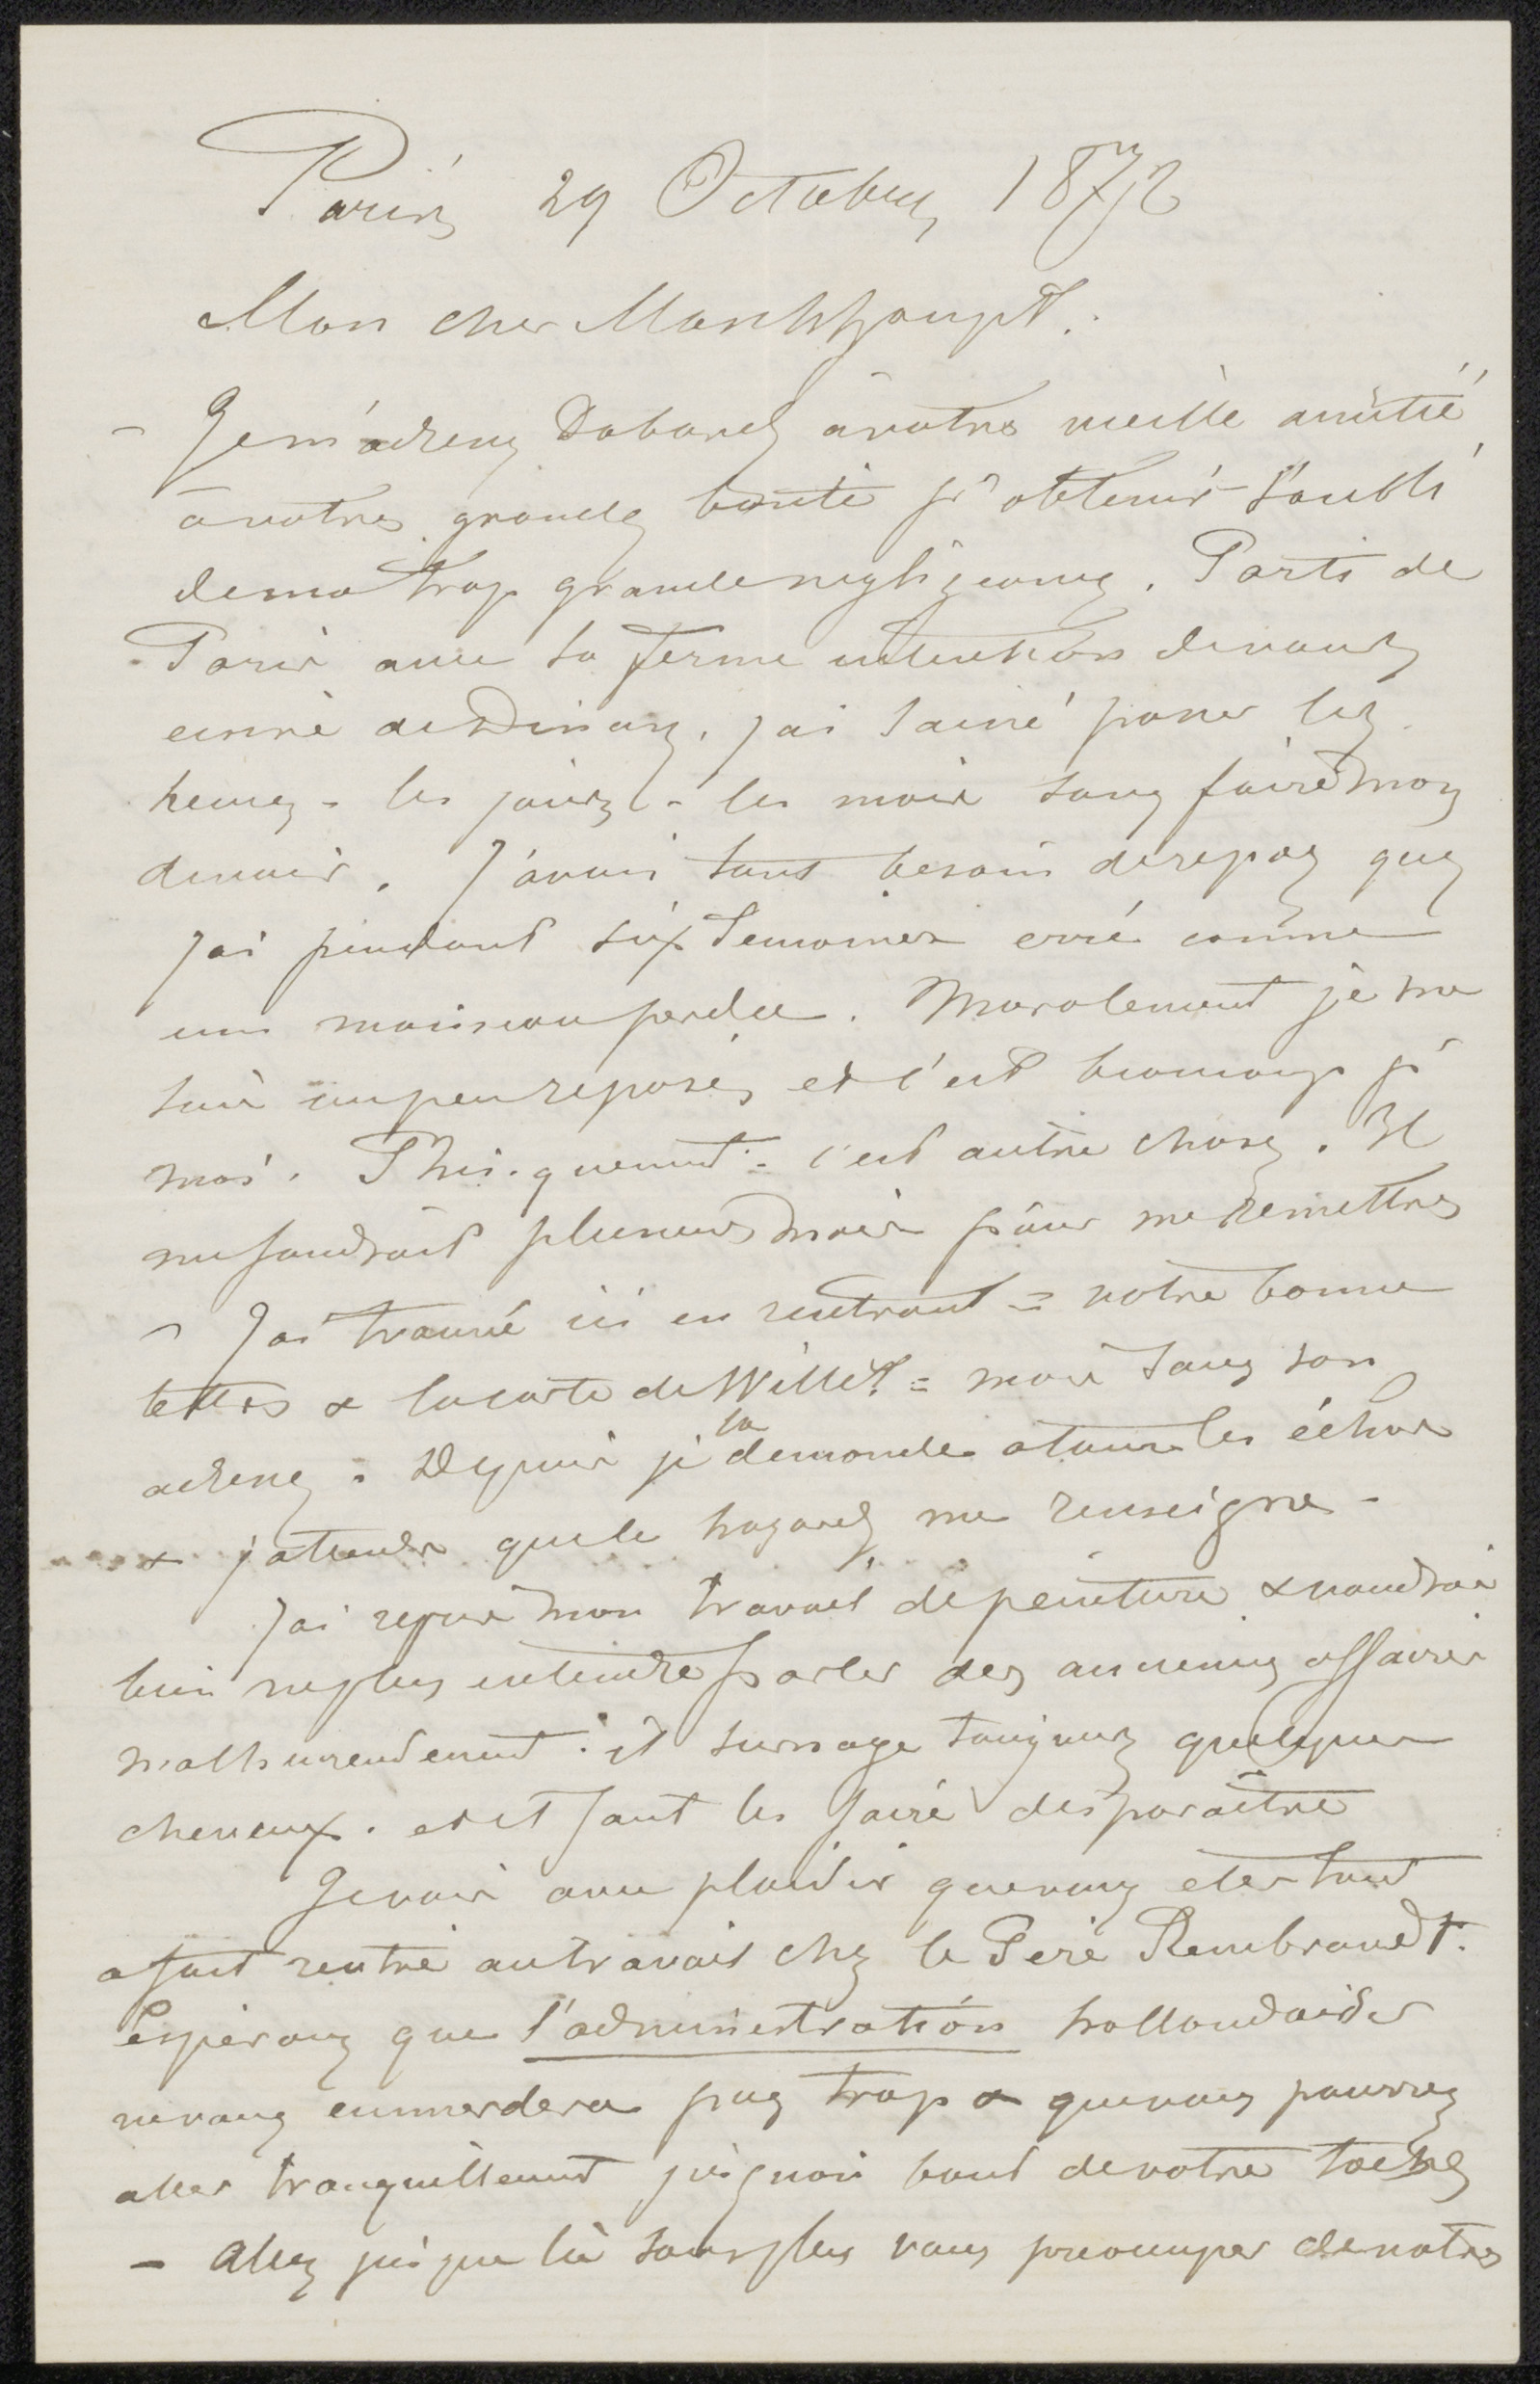 Paris 29 Octobre 1872
Mon cher Mouilleron
Je m'adresse Dabord à votre vieille amitié
à votre grande bonté pr obtenir l'oubli
de ma trop grande negligeance. Parti de
Paris avec la ferme intention de vous
ecrire de Dinan, j'ai laissé passer les
heures - les jours - les mois sans faire mon
devoir. J'avais tant besoin de repos que
j'ai pendant six semaines erré comme
un moineau perdu. Moralement je me
suis un peu reposé, et c'est beaucoup pr
moi. Phisiquement - c'est autre chose. Il
me faudrait plusieurs mois pour me remettre
J'ai trouvé ici en rentrant = votre bonne
lettre & la carte de Willet = mais sans son
adresse. Depuis je la demande a tous les échos
& j'attends que le hazard me renseigne -
J'ai repris mon travail de peinture & voudrais
bien ne plus entendre parler des anciennes affaires
malheureusement il surnage toujours quelques
cheveux. et il faut les faire disparaître
Je vois avec plaisir que vous etes tout
a fait rentré au travail chez le Père Rembrandt.
Esperons que l'administration hollandaise
ne vous emmerdera pas trop & que vous pourrez
aller tranquillement jusqu'au bout de votre tache
- Allez jusque là sans plus vous preocuper de notre